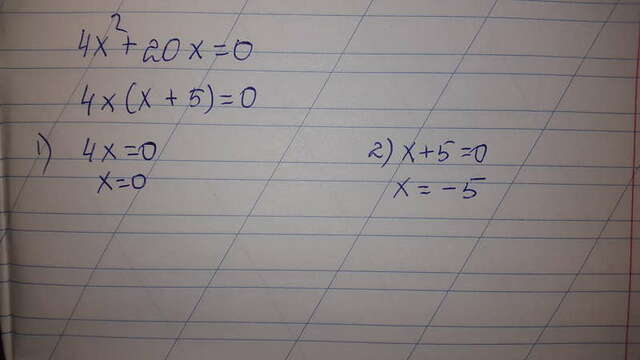 4x² + 20x = 0
4x(x + 5) = 0
1) 4x = 0
x = 0
2) x + 5 = 0
x = -5